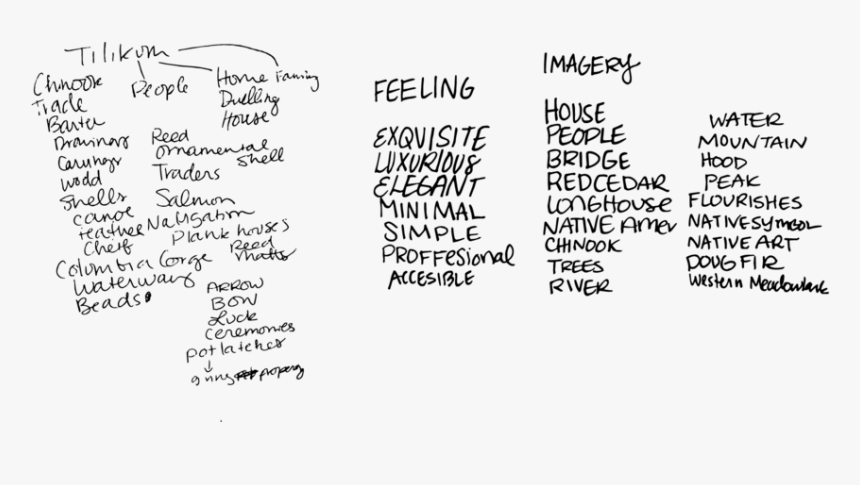 Tilikum
Chinook
Trade
Barter
Drawings
Carvings
wood
Shells
canoe
feather
Cheif
Columbia Gorge
Waterways
Beads
People
Home
Dwelling
House
Reed
ornamental
Shell
Traders
Salmon
Navigation
Plank houses
Reed
matts
ARROW
BOW
Luck
Ceremonies
potlatches
↓
giving property
FEELING
EXQUISITE
LUXURIOUS
ELEGANT
MINIMAL
SIMPLE
PROFFESIONAL
ACCESIBLE
IMAGERY
HOUSE
PEOPLE
BRIDGE
REDCEDAR
LONGHOUSE
NATIVE Amer
CHINOOK
TREES
RIVER
WATER
MOUNTAIN
HOOD
PEAK
FLOURISHES
NATIVE SYMBOL
NATIVE ART
DOUG FIR
Western Meadowlark